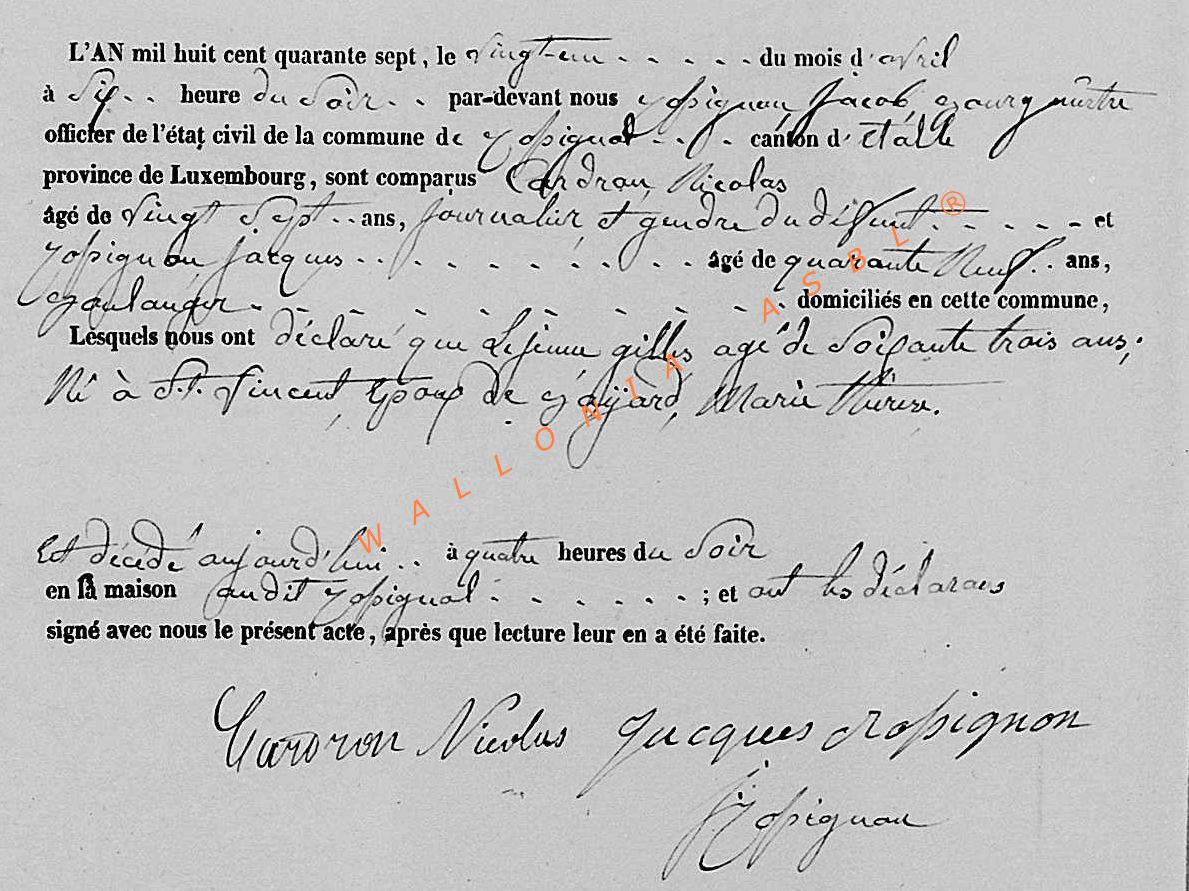 L'AN mil huit cent quarante sept, le vingt-un . . . . . du mois d'avril
à Six . . heure du Soir . . par-devant nous Rossignon Jacob, Bourgmêstre
officier de l'état civil de la commune de Rossignol . . . canton d'Etalle
province de Luxembourg, sont comparus Cardron, Nicolas
âgé de vingt Sept . . ans, Journalier et gendre du défunt . . . . . et
Rossignon, Jacques . . . . . . . . . âgé de quarante Neuf . . ans,
Boulanger . . . . . . . . . domiciliés en cette commune,
Lesquels nous ont déclaré que Lejeune gilles, agé de Soixante trois ans;
Né à St. Vincent, Epoux de Bajard, Marie Thérèse.
Est décédé aujourd'hui . . à quatre heures du Soir
en sa maison audit Rossignol . . . . . . ; et ont les déclarans
signé avec nous le présent acte, après que lecture leur en a été faite.
Cardron Nicolas Jacques Rossignon
J Rossignon
WALLONIA ASBL ®